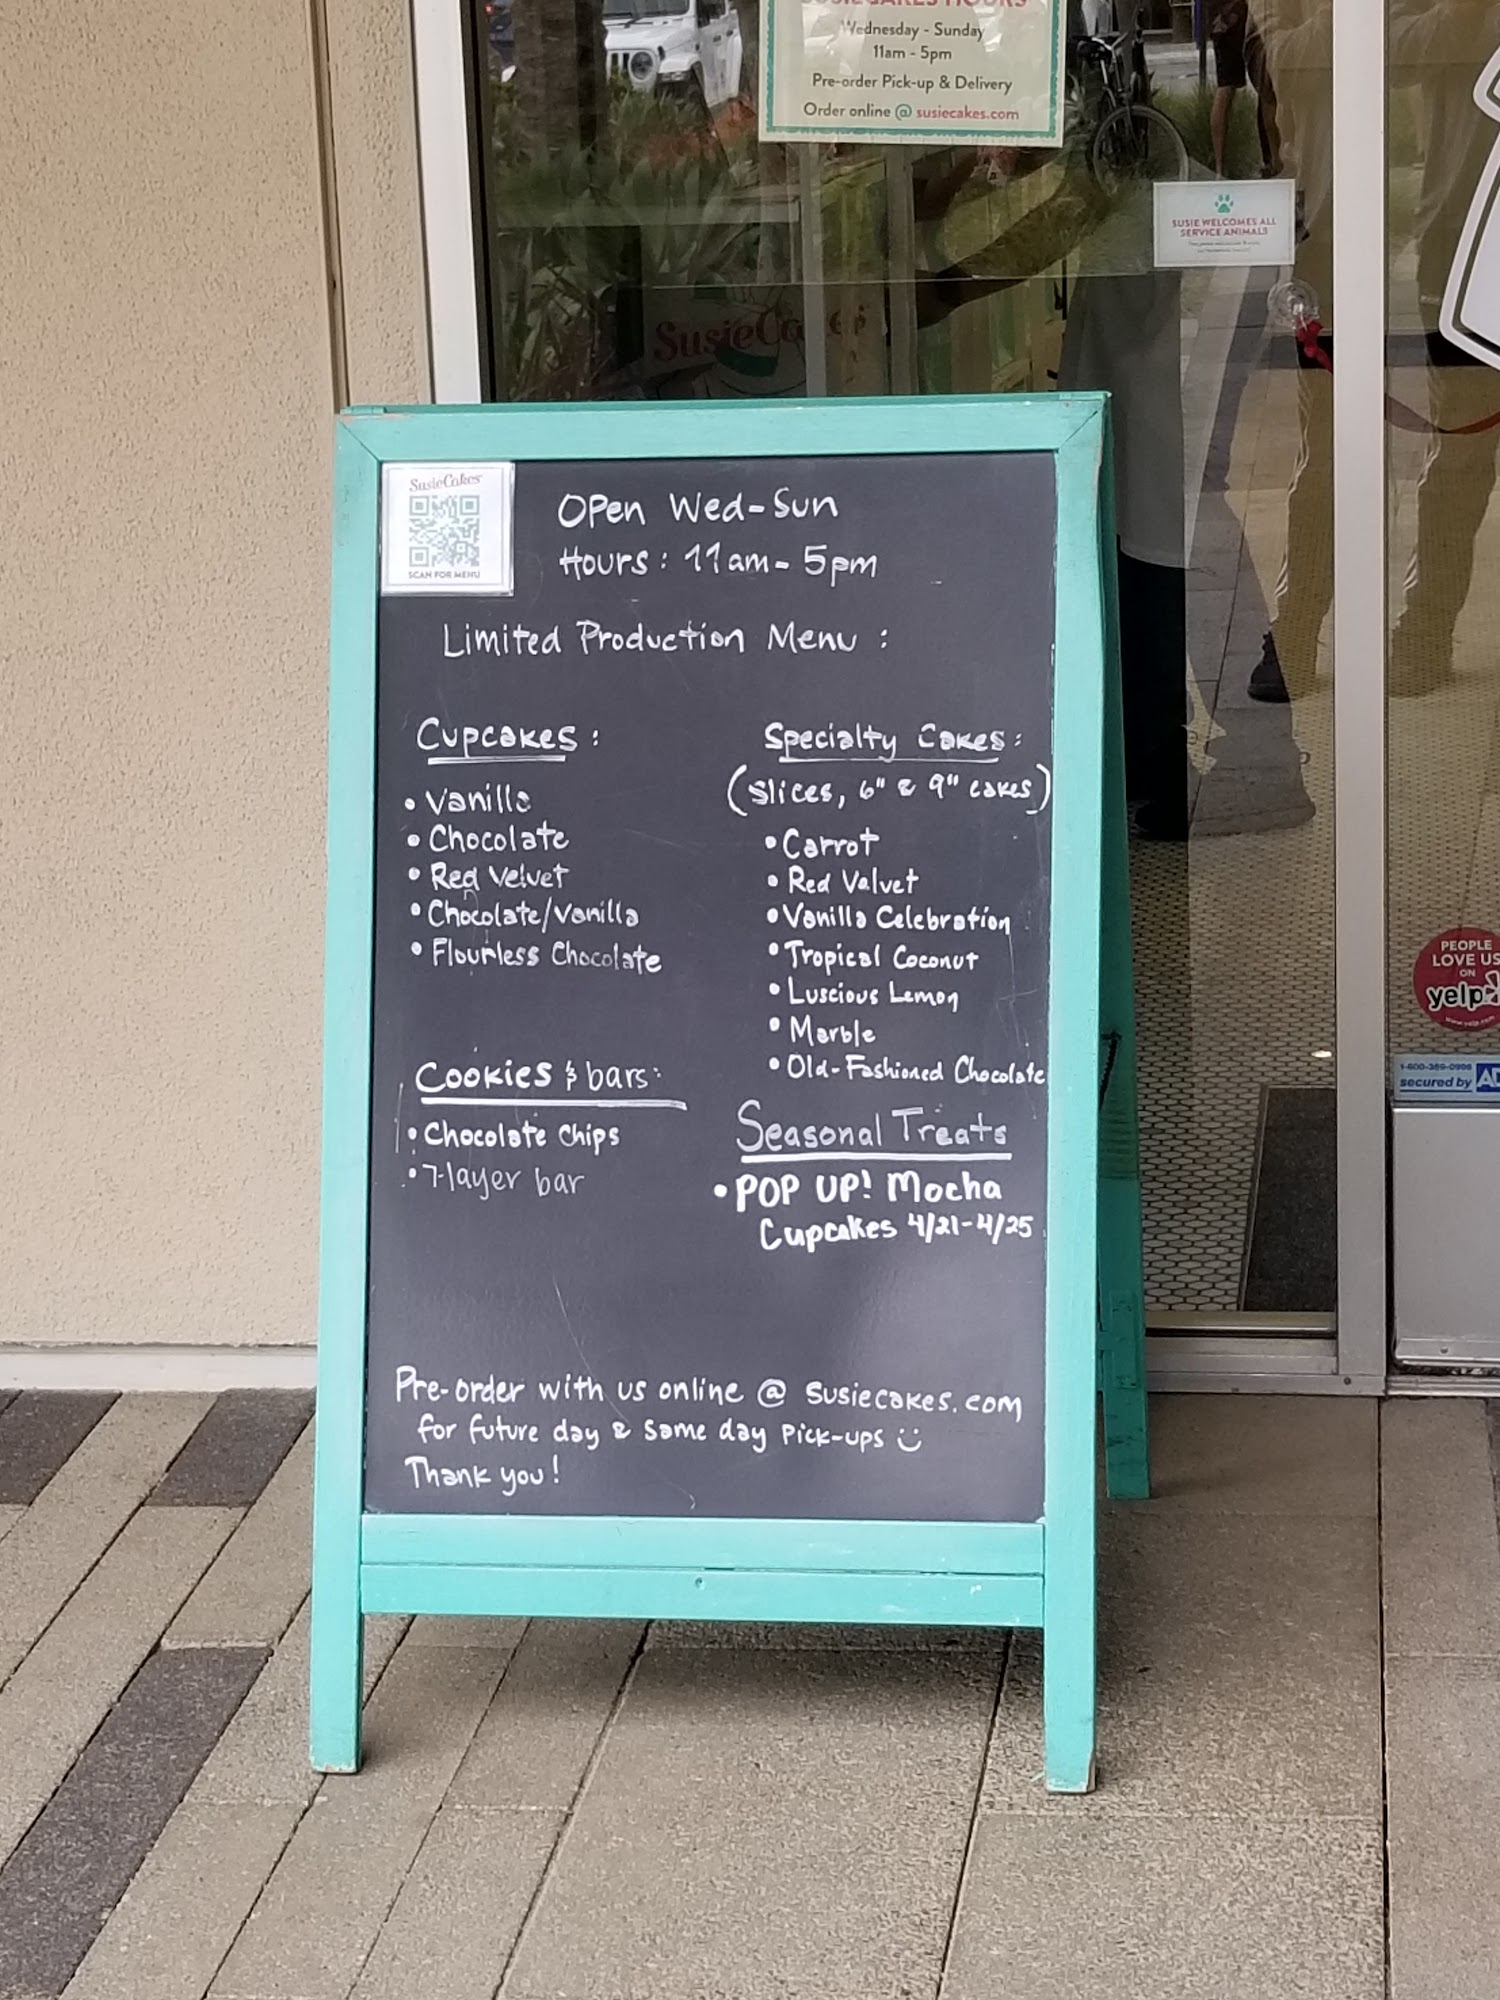 SUSIECAKES HOURS
Wednesday - Sunday
11am - 5pm
Pre-order Pick-up & Delivery
Order online @ susiecakes.com
SUSIE WELCOMES ALL
SERVICE ANIMALS
SusieCakes
SusieCakes
SCAN FOR MENU
Open Wed-Sun
Hours: 11am - 5pm
Limited Production Menu :
Cupcakes :
• Vanilla
• Chocolate
• Red Velvet
• Chocolate/Vanilla
• Flourless Chocolate
Cookies & bars:
• Chocolate Chips
• 7-layer bar
Specialty Cakes :
(Slices, 6" & 9" cakes)
• Carrot
• Red Valvet
• Vanilla Celebration
• Tropical Coconut
• Luscious Lemon
• Marble
• Old-Fashioned Chocolate
Seasonal Treats
• POP UP! Mocha
Cupcakes 4/21-4/25
Pre-order with us online @ susiecakes.com
for future day & same day pick-ups
Thank you!
PEOPLE
LOVE US
ON
yelp
www.yelp.com
1-800-389-0906
secured by AD